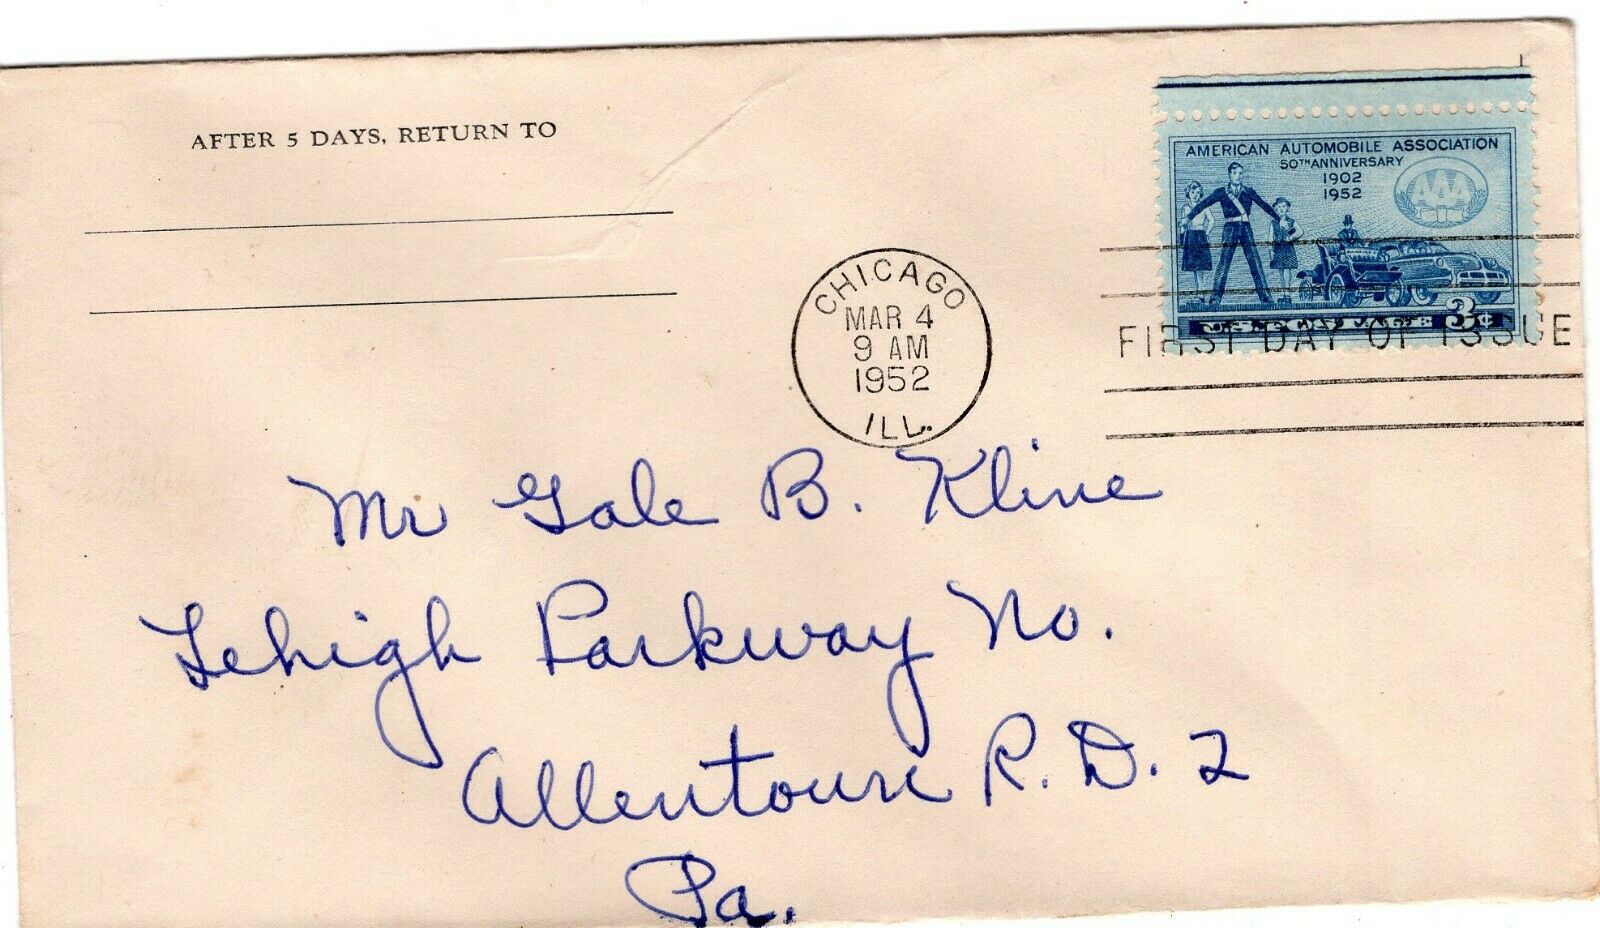 AFTER 5 DAYS, RETURN TO
AMERICAN AUTOMOBILE ASSOCIATION
50TH ANNIVERSARY
1902
1952
AAA
U.S. POSTAGE 3¢
CHICAGO
MAR 4
9 AM
1952
ILL.
FIRST DAY OF ISSUE
Mr Gale B. Kline
Lehigh Parkway No.
Allentown R.D. 2
Pa.